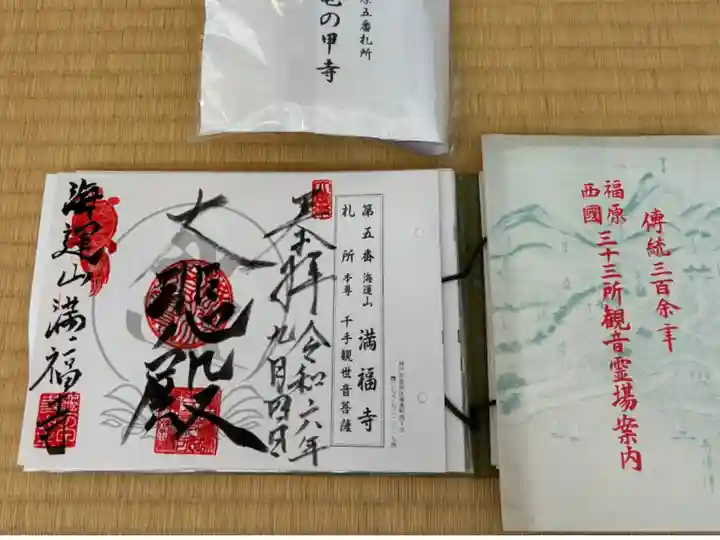 原五番札所
亀の甲寺
第五番 海運山 満福寺
札所 本尊 千手観世音菩薩
奉拝 令和六年
九月四日
大悲殿
海運山満福寺
傳統三百余年
福原
西國
三十三所観音霊場案内